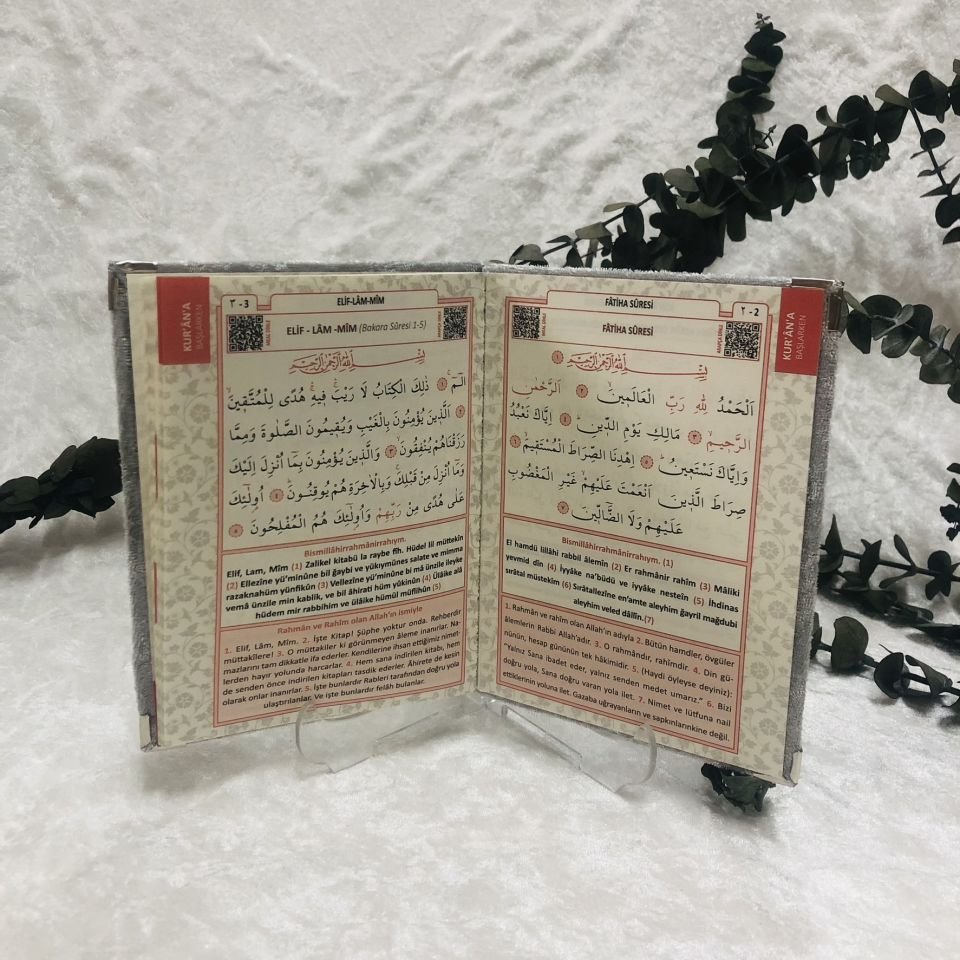 KUR'ÂN'A
BAŞLARKEN
FÂTİHA SÛRESİ
٢ - 2
FÂTİHA SÛRESİ
بِسْمِ اللّٰهِ الرَّحْمٰنِ الرَّحِيمِ ١
اَلْحَمْدُ لِلّٰهِ رَبِّ الْعَالَمِينَ ٢ اَلرَّحْمٰنِ
الرَّحِيمِ ٣ مَالِكِ يَوْمِ الدِّينِ ٤ اِيَّاكَ نَعْبُدُ
وَاِيَّاكَ نَسْتَعِينُ ٥ اِهْدِنَا الصِّرَاطَ الْمُسْتَقِيمَ ٦
صِرَاطَ الَّذِينَ اَنْعَمْتَ عَلَيْهِمْ غَيْرِ الْمَغْضُوبِ
عَلَيْهِمْ وَلَا الضَّالِّينَ ٧
Bismillâhirrahmânirrahıym. (1)
El hamdü lillâhi rabbil âlemîn (2) Er rahmânir rahîm (3) Mâliki
yevmid dîn (4) İyyâke na'büdü ve iyyâke nesteîn (5) İhdinas
sırâtal müstekîm (6) Sırâtallezîne en'amte aleyhim ğayril mağdubi
aleyhim veled dâllîn.(7)
1. Rahmân ve rahîm olan Allah'ın adıyla 2. Bütün hamdler, övgüler
âlemlerin Rabbi Allah'adır. 3. O rahmândır, rahîmdir. 4. Din gü-
nünün, hesap gününün tek hâkimidir. 5. (Haydi öyleyse deyiniz):
"Yalnız Sana ibadet eder, yalnız senden medet umarız." 6. Bizi
doğru yola, Sana doğru varan yola ilet. 7. Nimet ve lütfuna nail
ettiklerinin yoluna ilet. Gazaba uğrayanların ve sapkınlarınkine değil.
KUR'ÂN'A
BAŞLARKEN
٣ - 3
ELİF-LÂM-MÎM
ELİF - LÂM -MÎM (Bakara Sûresi 1-5)
بِسْمِ اللّٰهِ الرَّحْمٰنِ الرَّحِيمِ
الٓمٓ ١ ذٰلِكَ الْكِتَابُ لَا رَيْبَ فِيهِ هُدًى لِلْمُتَّقِينَ
٢ اَلَّذِينَ يُؤْمِنُونَ بِالْغَيْبِ وَيُقِيمُونَ الصَّلٰوةَ وَمِمَّا
رَزَقْنَاهُمْ يُنْفِقُونَ ٣ وَالَّذِينَ يُؤْمِنُونَ بِمَٓا اُنْزِلَ اِلَيْكَ
وَمَٓا اُنْزِلَ مِنْ قَبْلِكَ وَبِالْاٰخِرَةِ هُمْ يُوقِنُونَ ٤ اُولٰٓئِكَ
عَلٰى هُدًى مِنْ رَبِّهِمْ وَاُولٰٓئِكَ هُمُ الْمُفْلِحُونَ ٥
Bismillâhirrahmânirrahıym.
Elif, Lam, Mîm (1) Zalikel kitabü la raybe fîh. Hüdel lil müttekîn
(2) Ellezîne yü'minûne bil ğaybi ve yükıymûnes salate ve mimma
razaknahüm yünfikûn (3) Vellezîne yü'minûne bi mâ ünzile ileyke
vemâ ünzile min kablik, ve bil âhirati hüm yûkinûn (4) Ülâike alâ
hüdem mir rabbihim ve ülâike hümül müflihûn (5)
Rahmân ve Rahîm olan Allah'ın ismiyle
1. Elif, Lâm, Mîm. 2. İşte Kitap! Şüphe yoktur onda. Rehberdir
müttakîlere! 3. O müttakiler ki görünmeyen âleme inanırlar. Na-
mazlarını tam dikkatle ifa ederler. Kendilerine ihsan ettiğimiz nimet-
lerden hayır yolunda harcarlar. 4. Hem sana indirilen kitabı, hem
de senden önce indirilen kitapları tasdik ederler. Âhirete de kesin
olarak onlar inanırlar. 5. İşte bunlardır Rableri tarafından doğru yola
ulaştırılanlar. Ve işte bunlardır felâh bulanlar.